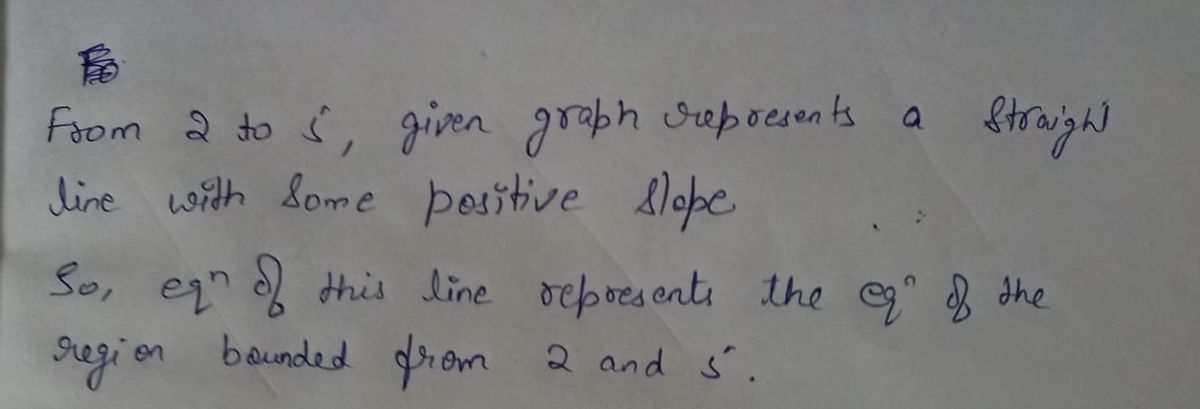 From 2 to 5, given graph represents a straight
line with some positive slope
So, eqⁿ of this line represents the eqⁿ of the
region bounded from 2 and 5.